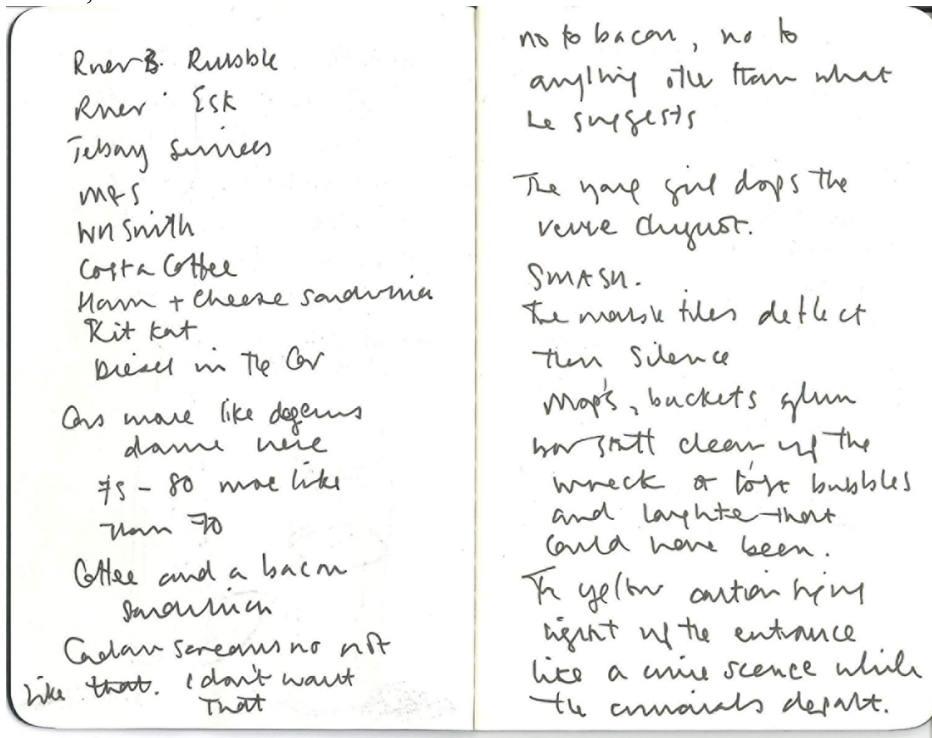 River Rubble
River Esk
Tebay Services
M&S
WH Smith
Costa Coffee
Ham + Cheese sandwich
Kit Kat
Diesel in the Car
Cars more like
dance here
75 - 80 more like
than 70
Coffee and a bacon
sandwich
screams no not
like that. I don't want
that
no to bacon, no to
anything other than what
he suggests
The young girl drops the
SMASH.
The marble tiles deflect
then silence
Mops, buckets glum
bar staff clean up the
wreck of lost bubbles
and laughter that
could have been.
The yellow caution
light up the entrance
like a crime scence while
the criminals depart.